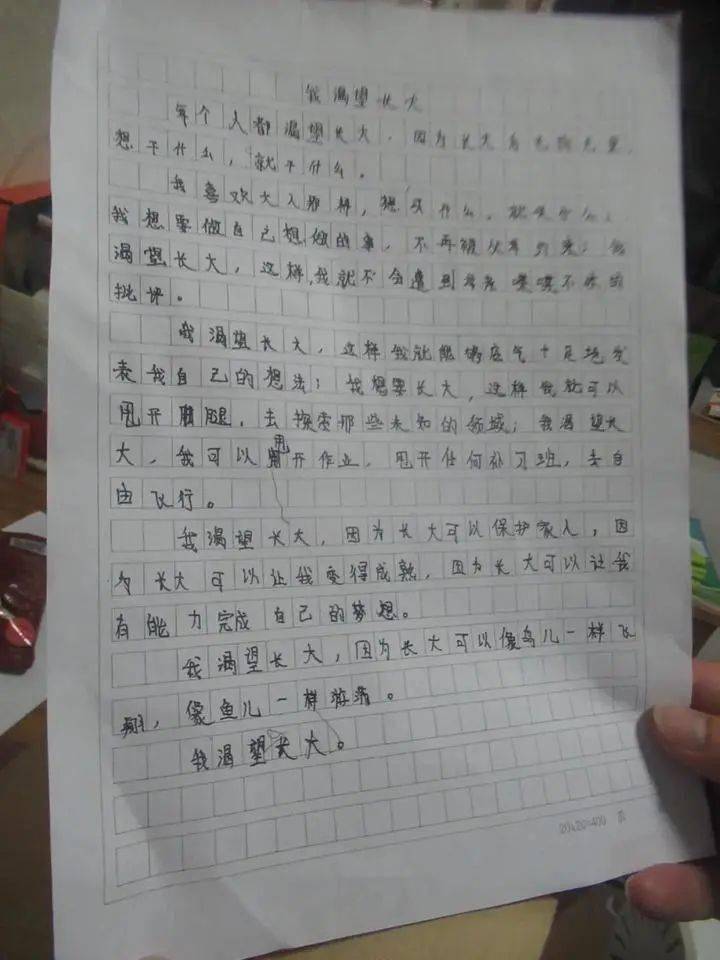 我渴望长大
每个人都渴望长大，因为长大后无拘无束，
想干什么，就干什么。
我喜欢大人那样，想买什么，就买什么；
我想要做自己想做的事，不再被约束；我
渴望长大，这样，我就不会遭到喋喋不休的
批评。
我渴望长大，这样我就能够底气十足地发
表我自己的想法；我想要长大，这样我就可以
甩开腿，去探索那些未知的领域；我渴望长
大，我可以甩开作业，甩开任何补习班，去自
由飞行。
我渴望长大，因为长大可以保护家人，因
为长大可以让我变得成熟，因为长大可以让我
有能力完成自己的梦想。
我渴望长大，因为长大可以像鸟儿一样飞
翔，像鱼儿一样游
我渴望长大。
20×20=400 页